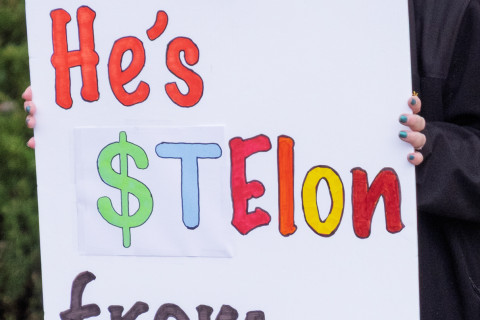 He's
$TElon
from